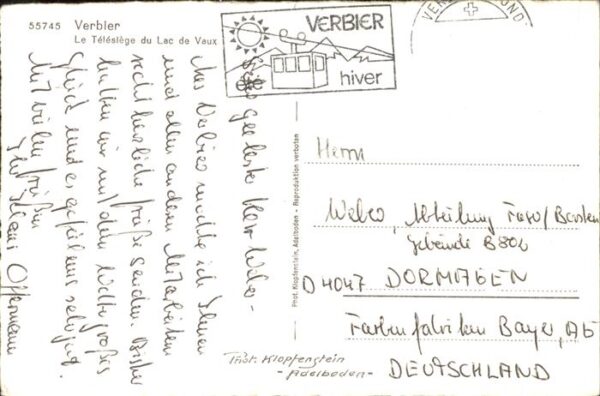 55745 Verbier
Le Télésiège du Lac de Vaux
VERBIER
hiver
Sehr geehrter Herr Weber -
Aus Verbier möchte ich Ihnen
und allen anderen Mitarbeitern
recht herzliche Grüße senden. Bisher
hatten wir mit dem Wetter großes
Glück und es gefällt uns sehr gut.
Mit vielen Grüßen
Ihr Klaus Offermann
Phot. Klopfenstein, Adelboden - Reproduktion verboten
Herrn
Weber, Abteilung Faso/Bauten
Gebäude B 802
D 4047 DORMAGEN
Farbenfabriken Bayer, AG
DEUTSCHLAND
Phot. Klopfenstein
- Adelboden -